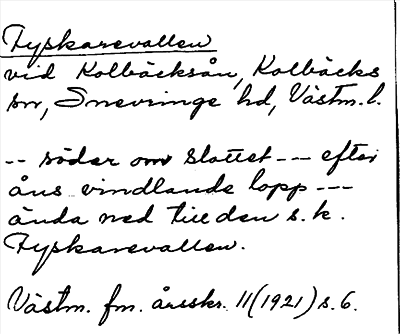 Tyskarevallen
vid Kolbäcksån, Kolbäcks
sn, Snevringe hd, Västm. l.
-- söder om slottet --- efter
åns vindlande lopp ---
ända ned till den s.k.
Tyskarevallen.
Västm. fm. årsskr. 11(1921) s. 6.